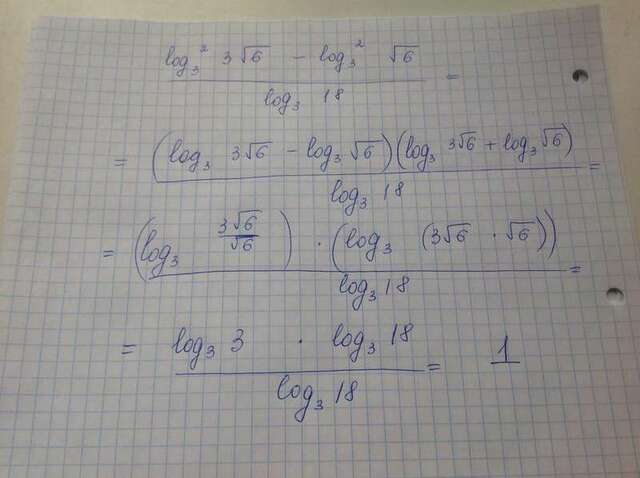 log₃² 3√6 − log₃² √6
log₃ 18 =
= (log₃ 3√6 − log₃ √6)(log₃ 3√6 + log₃ √6)
log₃ 18 =
= (log₃ 3√6/√6) · (log₃ (3√6 · √6))
log₃ 18 =
= log₃ 3 · log₃ 18
log₃ 18 = 1